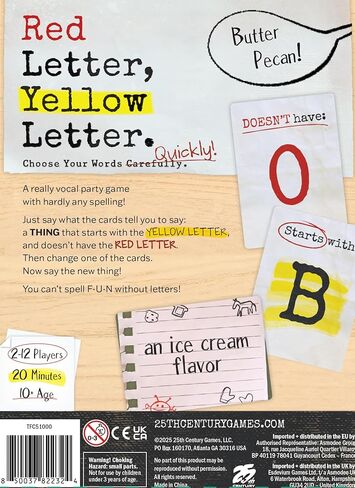 Red
Letter,
Yellow
Letter.
Choose Your Words Carefully. Quickly!
Butter
Pecan!
DOESN'T have:
O
Starts with
B
A really vocal party game
with hardly any spelling!
Just say what the cards tell you to say:
a THING that starts with the YELLOW LETTER,
and doesn't have the RED LETTER.
Then change one of the cards.
Now say the new thing!
You can't spell F-U-N without letters!
an ice cream
flavor
2-12 Players
20 Minutes
10+ Age
TFC51000
8 50037 82232 4
0-3
CE UK CA
Warning! Choking
Hazard: small parts.
Not for use by children
under 3 years of age.
25THCENTURYGAMES.COM
©2025 25th Century Games, LLC.
PO Box 160170, Atlanta GA 30316 USA
No part of this product may be
reproduced without permission.
All rights reserved.
Made in China.
25
CENTURY
Imported + distributed in the EU by
Authorised Representative: Asmodee Group
18, rue Jacqueline Auriol Quartier Villaroy
BP 40119 78041 Guyancourt Cedex - France
Imported + distributed in the UK by
Esdevium Games Ltd, t/a Asmodee UK
6 Waterbrook Road, Alton, Hampshire
GU34 2UD - United Kingdom